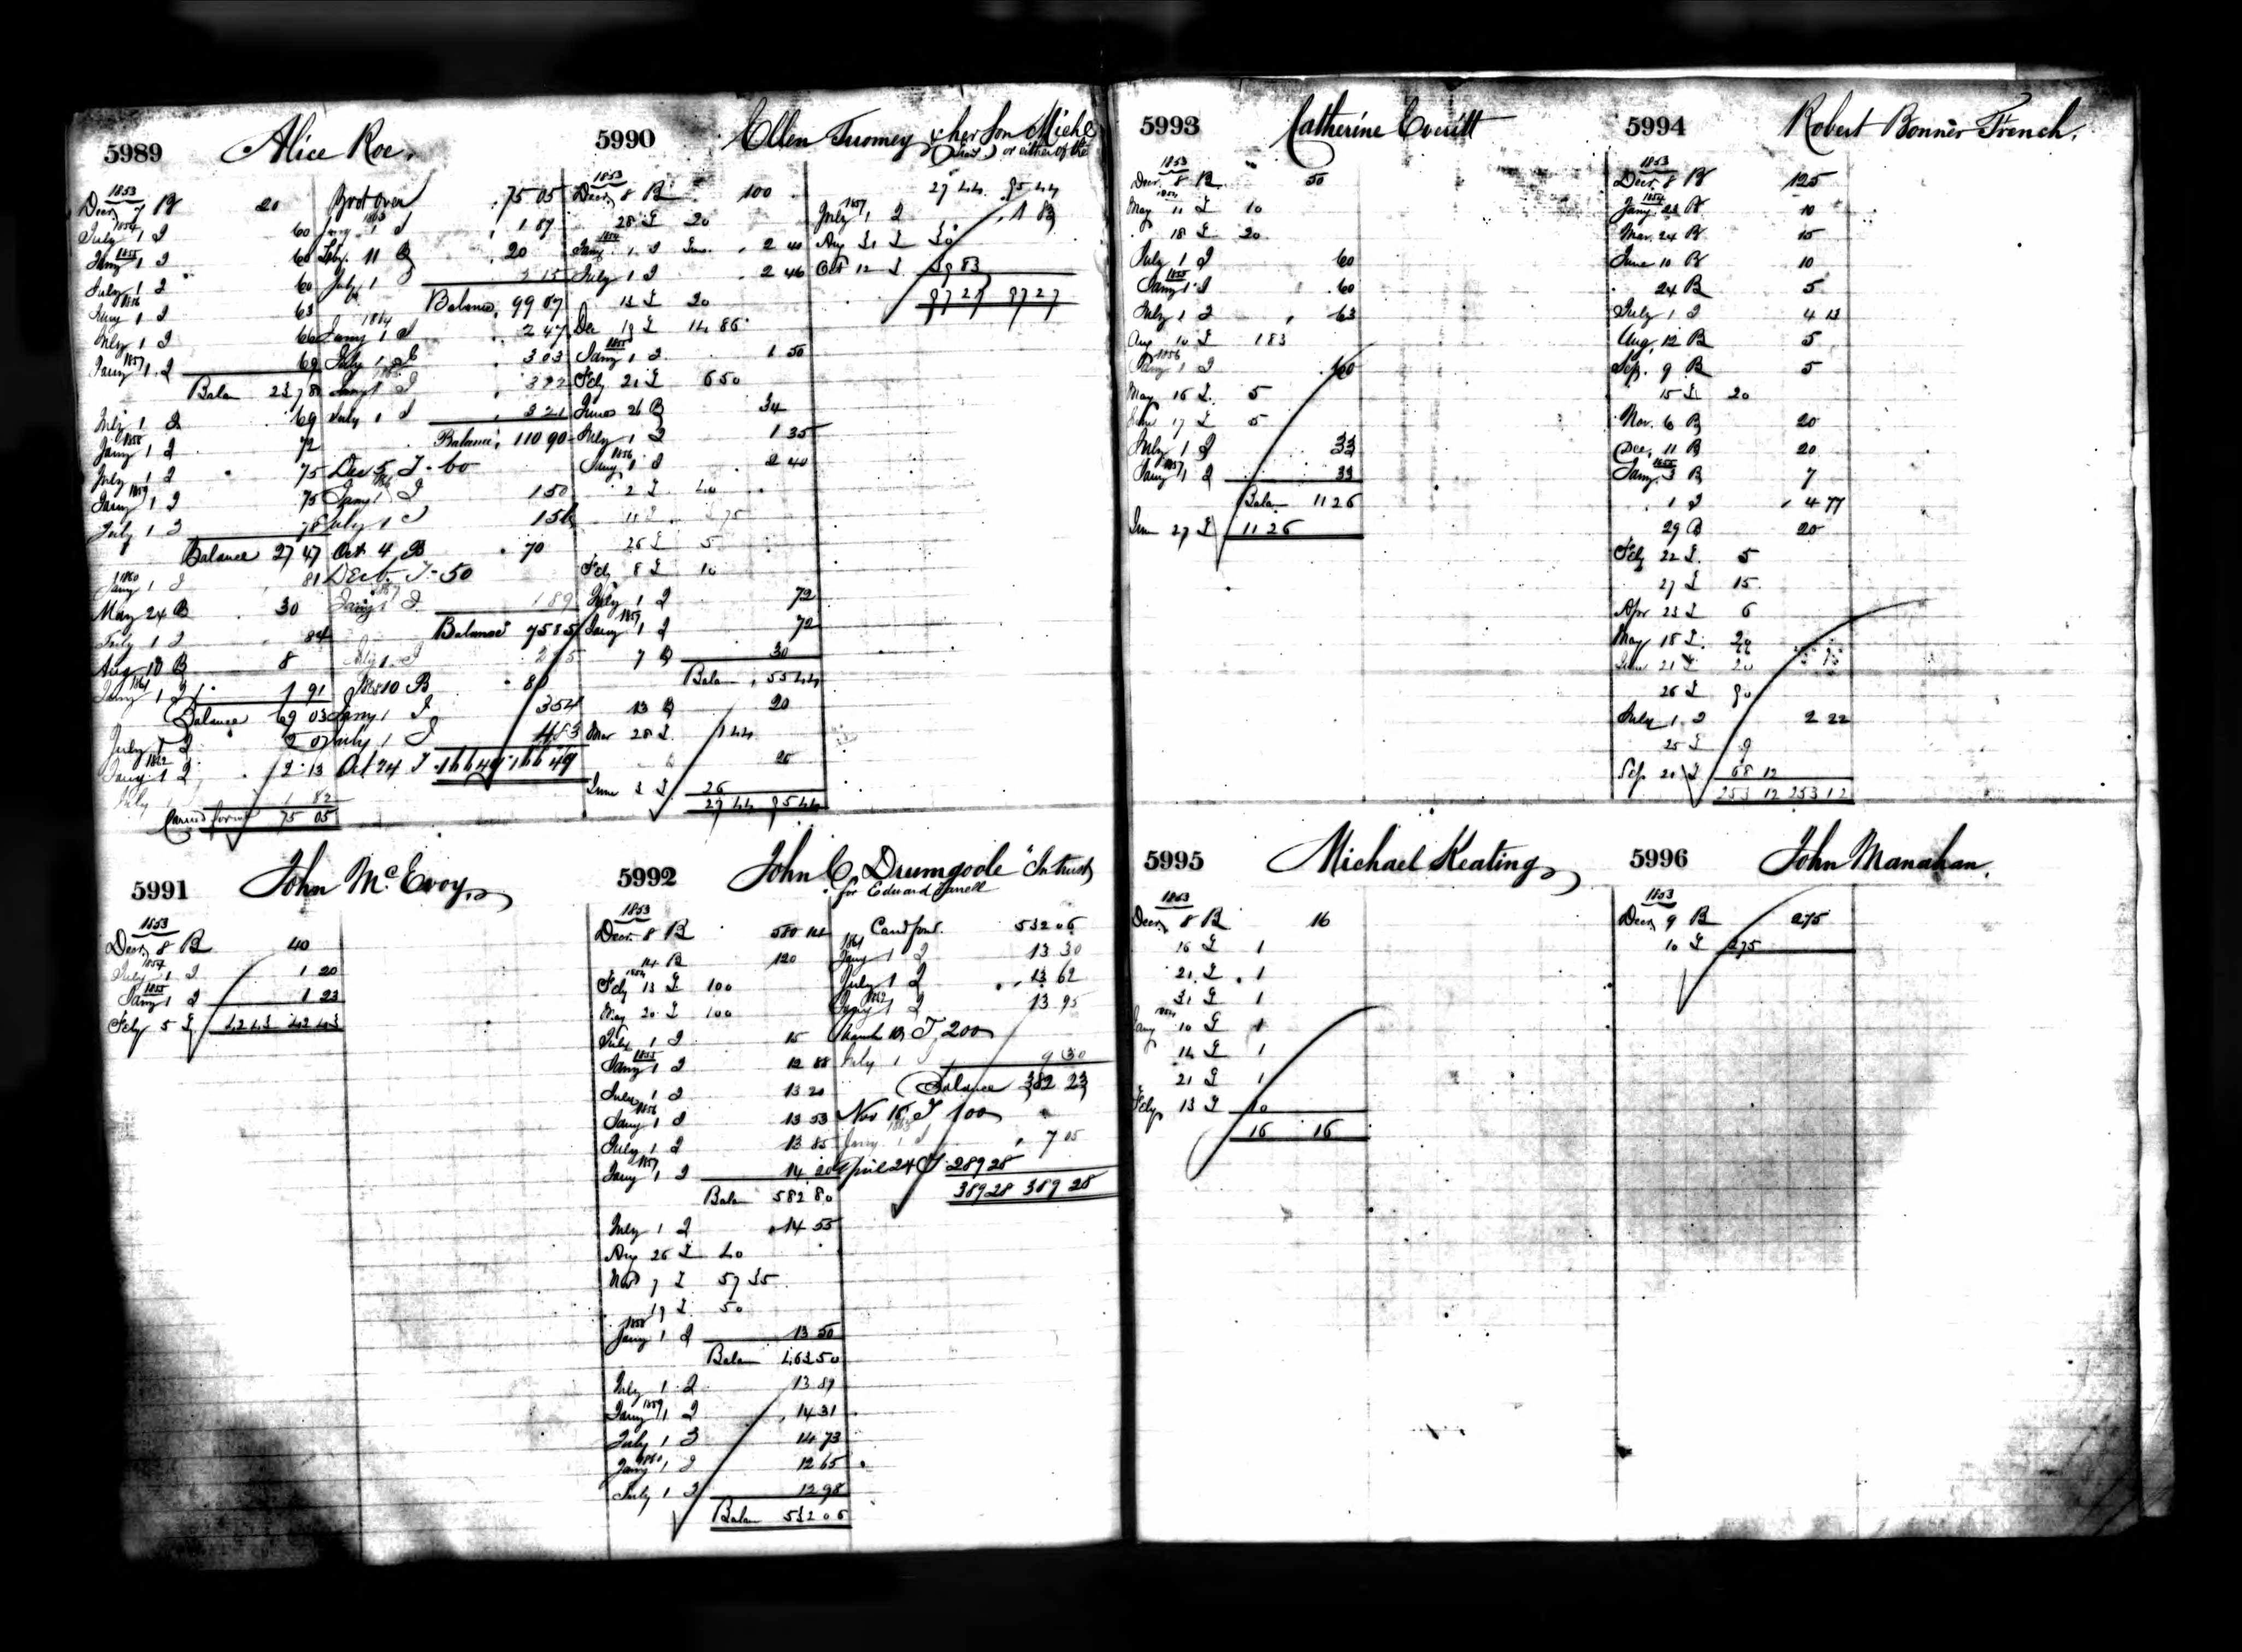 5989 Alice Roe.
1853
Decr. 7 B 20
1854
July 1 I 60
1855
Jany 1 I 60
July 1 I 60
1856
Jany 1 I 63
July 1 I 66
1857
Jany 1 I 69
Balan 23 78
July 1 I 69
1858
Jany 1 I 72
July 1 I 75
1859
Jany 1 I 75
July 1 I 78
Balance 27 47
1860
Jany 1 I 81
May 24 B 30
July 1 I 84
Aug 10 B 8
1861
Jany 1 I 1 91
Balance 69 03
July 1 I 2 07
1862
Jany 1 I 2 13
July 1 82
Carried forw 75 05
Brot over 75 05
1863
Jany 1 I 1 87
Feby. 11 B 20
July 1 2 15
Balance, 99 07
1864
Jany 1 I 2 47
July 1 I 3 03
Jany 1 I 3 22
July 1 I 3 21
Balance, 110 90
Dec 5 T 60
1866
Jany 1 I 1 50
July 1 I 1 56
Oct 4 B 70
Dec 6. T 50
1867
Jany 1 I 1 89
Balance 75 85
July 1 I 2 25
10 B 80
Jany 1 I 3 54
July 1 I 4 53
Oct 24 T 166 49 166 49
5990 Ellen Tuomey & her Son Michl
or either of the
1853
Decr. 8 B 100
28 T 20
1854
Jany. 1 I 2 40
July 1 I 2 46
13 T 20
Dec 19 T 14 86
1855
Jany 1 I 1 50
Feby 21 T 6 50
June 26 B 34
July 1 I 1 35
1856
Jany 1 I 2 40
2 T 40
11 T 75
26 T 5
Feby 8 T 10
July 1 I 72
1857
Jany 1 I 72
7 B 30
Balan 55 44
13 B 20
Mar 28 T 1 44
20
June 3 T 26
27 44 95 44
27 44 95 44
1857
July 1 I 1 83
Aug 31 T 30
Oct 12 T 39 83
97 27 97 27
5991 John McEvoy
1853
Decr. 8 B 40
1854
July 1 I 1 20
1855
Jany 1 I 1 23
Feby 5 T 42 43 42 43
5992 John C. Drumgoole "In trust
for Edward Farrell
1853
Decr. 8 B 580 14
14 B 120
1854
Feby 13 T 100
May 20 T 100
July 1 I 15
1855
Jany 1 I 12 88
July 1 I 13 20
1856
Jany 1 I 13 53
July 1 I 13 85
1857
Jany 1 I 14 20
Balan 582 80
July 1 I 14 55
Aug 26 T 40
Nov 7 T 57 35
19 T 50
1858
Jany 1 I 13 50
Balan 463 50
July 1 I 13 89
1859
Jany 1 I 14 31
July 1 I 14 73
1860
Jany 1 I 12 65
July 1 I 12 98
Balan 532 06
Card forwd. 532 06
1861
Jany 1 I 13 30
July 1 I 13 62
1862
Jany 1 I 13 95
March 18 T 200
July 1 I 9 30
Balance 382 23
Nov 15 T 100
1863
Jany 1 I 7 05
April 24 T 289 28
389 28 389 28
5993 Catherine Everitt
1853
Decr. 8 B 50
1854
May 11 T 10
18 T 20
July 1 I 60
1855
Jany 1 I 60
July 1 I 63
Aug 10 T 1 83
1856
Jany 1 I 60
May 16 T. 5
June 17 T 5
July 1 I 33
1857
Jany 1 I 33
Balan 11 26
June 27 T 11 26
5994 Robert Bonner French.
1853
Decr. 8 B 125
1854
Jany. 23 B 10
Mar. 24 B 15
June 10 B 10
24 B 5
July 1 I 4 13
Aug. 12 B 5
Sep. 9 B 5
15 T 20
Nov. 6 B 20
Dec. 11 B 20
1855
Jany. 3 B 7
1 I 4 77
29 B 20
Feby 22 T. 5
27 T 15
Apr 23 T 6
May 18 T. 20
June 21 T 20
26 T 90
July 1 I 2 22
25 T 9
Sep 20 T 68 12
253 12 253 12
5995 Michael Keating
1853
Decr. 8 B 16
16 T 1
21 T 1
31 T 1
1854
Jany 10 T 1
14 T 1
21 T 1
Feby 13 T 10
16 16
5996 John Manahan.
1853
Decr. 9 B 275
10 T 275